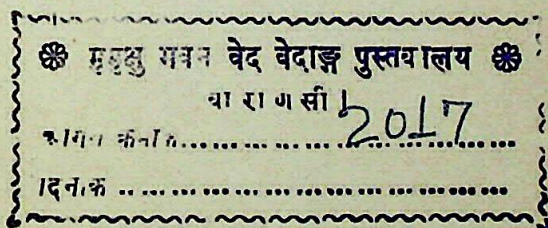 ❀ मुमुक्षु भवन वेद वेदाङ्ग पुस्तकालय ❀
वा रा ण सी
आगत क्रमांक 2017
दिनांक